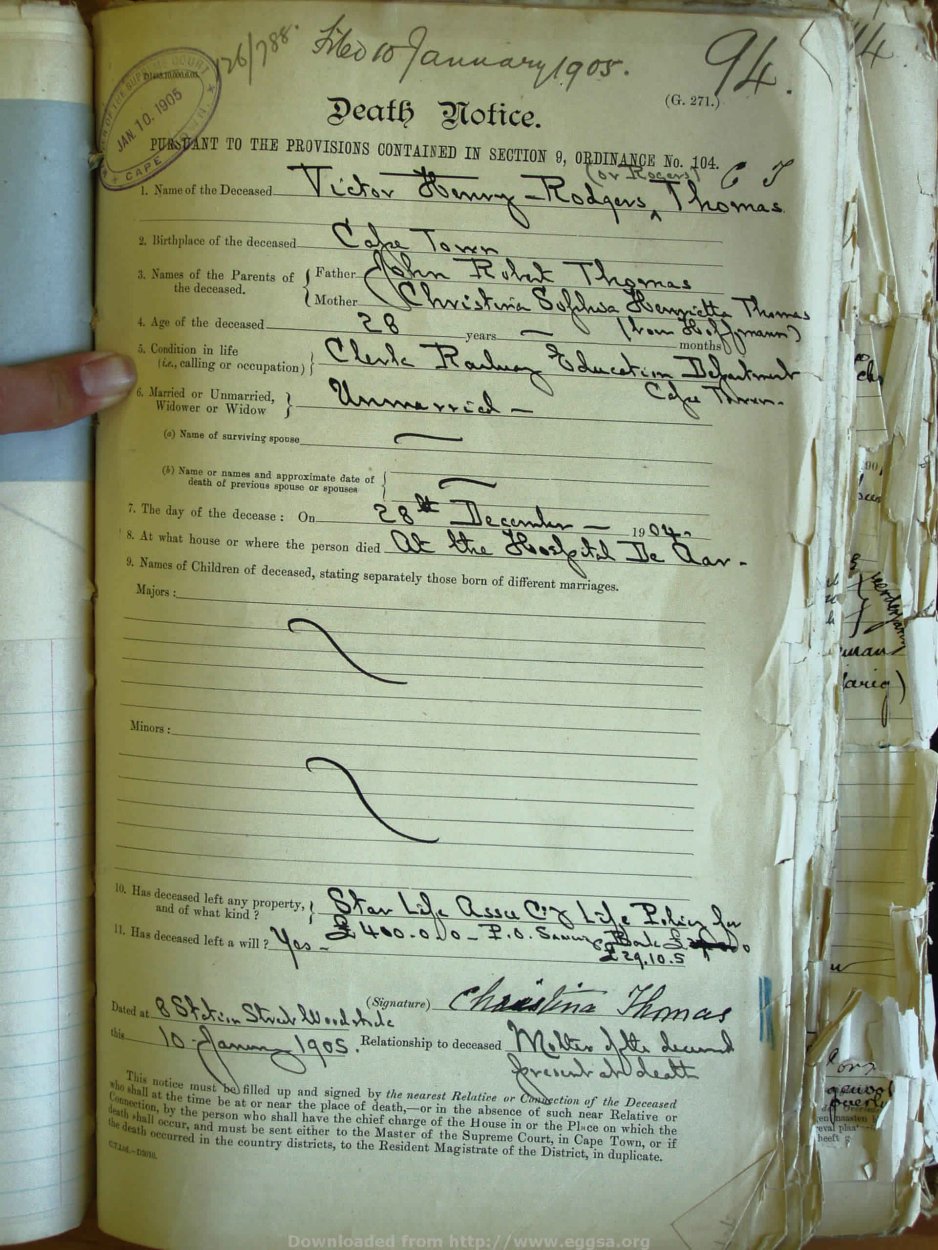 26/788. Filed 10 January 1905. 94.
JAN. 10. 1905
CAPE
(G. 271.)
Death Notice.
PURSUANT TO THE PROVISIONS CONTAINED IN SECTION 9, ORDINANCE No. 104.
(or Rogers) C T
1. Name of the Deceased Victor Henry - Rodgers ^ Thomas
2. Birthplace of the deceased Cape Town
3. Names of the Parents of the deceased. { Father John Robert Thomas
Mother Christina Sophia Henrietta Thomas
(born Hoffmann)
4. Age of the deceased 28 years — months
5. Condition in life (i.e., calling or occupation) } Clerk Railway Education Department
Cape Town.
6. Married or Unmarried, Widower or Widow } Unmarried -
(a) Name of surviving spouse —
(b) Name or names and approximate date of death of previous spouse or spouses { —
7. The day of the decease: On 28th December — 1904
8. At what house or where the person died At the Hospital De Aar -
9. Names of Children of deceased, stating separately those born of different marriages.
Majors :
Minors :
10. Has deceased left any property, and of what kind ? } Star Life Assce Coy Life Policy for
£400.0.0 - P.O. Savings Bank £
£29.10.5
11. Has deceased left a will ? Yes -
(Signature) Christina Thomas
Dated at 8 Station Street Woodstock
this 10 January 1905. Relationship to deceased Mother of the deceased
present at death
This notice must be filled up and signed by the nearest Relative or Connection of the Deceased
who shall at the time be at or near the place of death,—or in the absence of such near Relative or
Connection, by the person who shall have the chief charge of the House in or the Place on which the
death shall occur, and must be sent either to the Master of the Supreme Court, in Cape Town, or if
the death occurred in the country districts, to the Resident Magistrate of the District, in duplicate.
Downloaded from http://www.eggsa.org